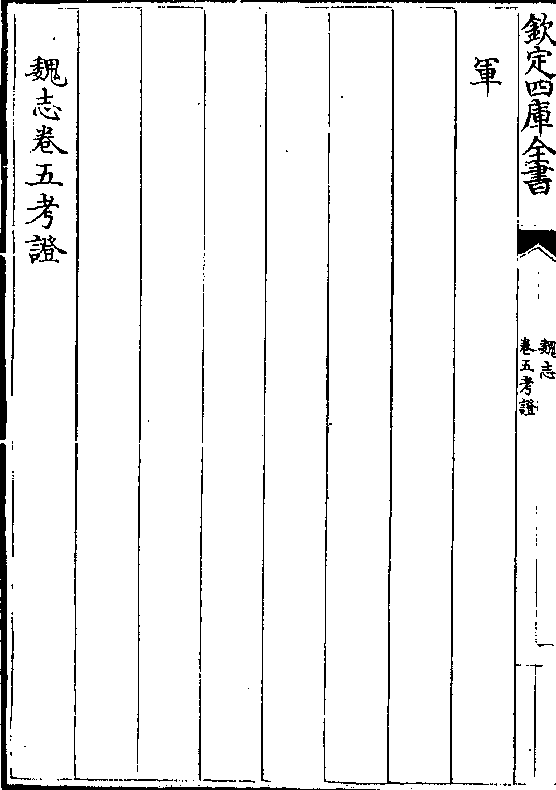 欽定四庫全書
魏志
卷五考證
軍
魏志卷五考證